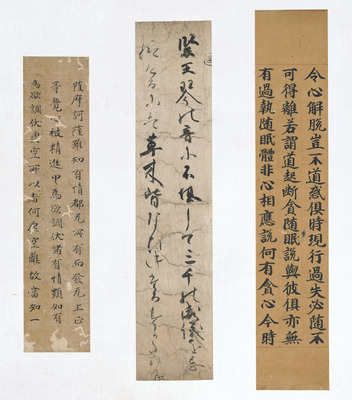 令心解脱豈不道惑俱時現行過失必随不
可得離若謂道起断貪随眠説與彼俱亦無
有過執随眠體非心相應説何有貪心今時
緊王琴の音に不堪して三千の威儀を忘
草木皆
薩摩訶薩雖知有情都无所有而發无上正
等覺心被精進甲為欲調伏諸有情類如有
為欲調伏虚空所以者何虚空離故當知一